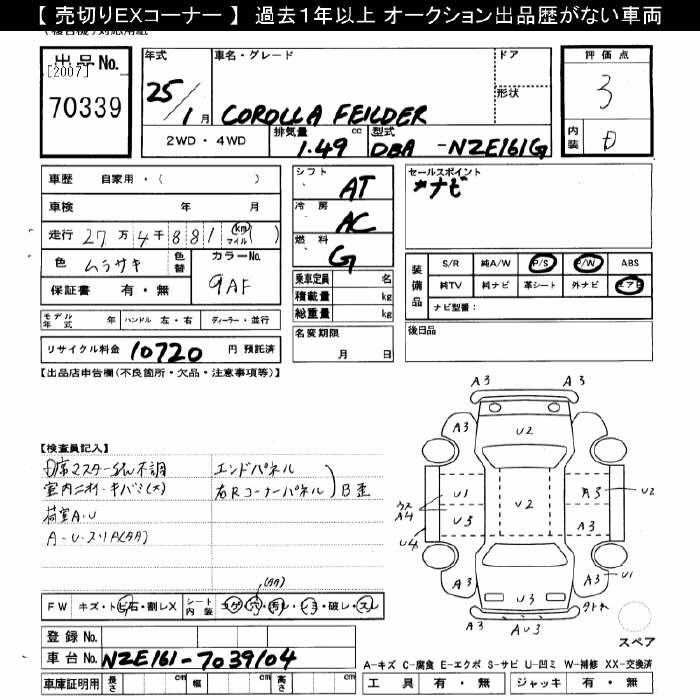 【 売切りEXコーナー 】 過去1年以上 オークション出品歴がない車両
出品No.
[2007]
70339
年式
25/1月
車名・グレード
COROLLA FEILDER
ドア
形状
2WD・4WD
排気量
1.49 cc
型式
DBA -NZE161G
評価点
3
内装
D
車歴 自家用・( )
車検 年 月
走行 27万4千881 (km マイル)
色 ムラサキ
色替
カラーNo.
9AF
保証書 有・無
モデル年式 年 ハンドル 左・右 ディーラー・並行
リサイクル料金 10720 円 預託済
シフト
AT
冷房
AC
燃料
G
乗車定員 名
積載量 kg
総重量 kg
名変期限
月 日
セールスポイント
*ナビ
装備品
S/R 純A/W P/S P/W ABS
純TV 純ナビ 革シート 外ナビ エアB
ナビ型番:
後日品
【出品店申告欄(不良箇所・欠品・注意事項等)】
【検査員記入】
室内ニオイ・キバミ(大)
荷室A・U
エンドパネル
右Rコーナーパネル
B歪
FW キズ・トビ石・割レX シート内装 コゲ・穴・汚レ・シミ・破レ・スレ
登録No.
車台No. NZE161-7039104
車庫証明用 長さ cm 幅 cm 高さ cm
A3 A3
A3 U2 A3
U1 U2 A3 U2
A4
U3 A3
U4
A3 U3 A3 U1
A3 AU3
スペア
A-キズ C-腐食 E-エクボ S-サビ U-凹ミ W-補修 XX-交換済
工具 有・無 ジャッキ 有・無